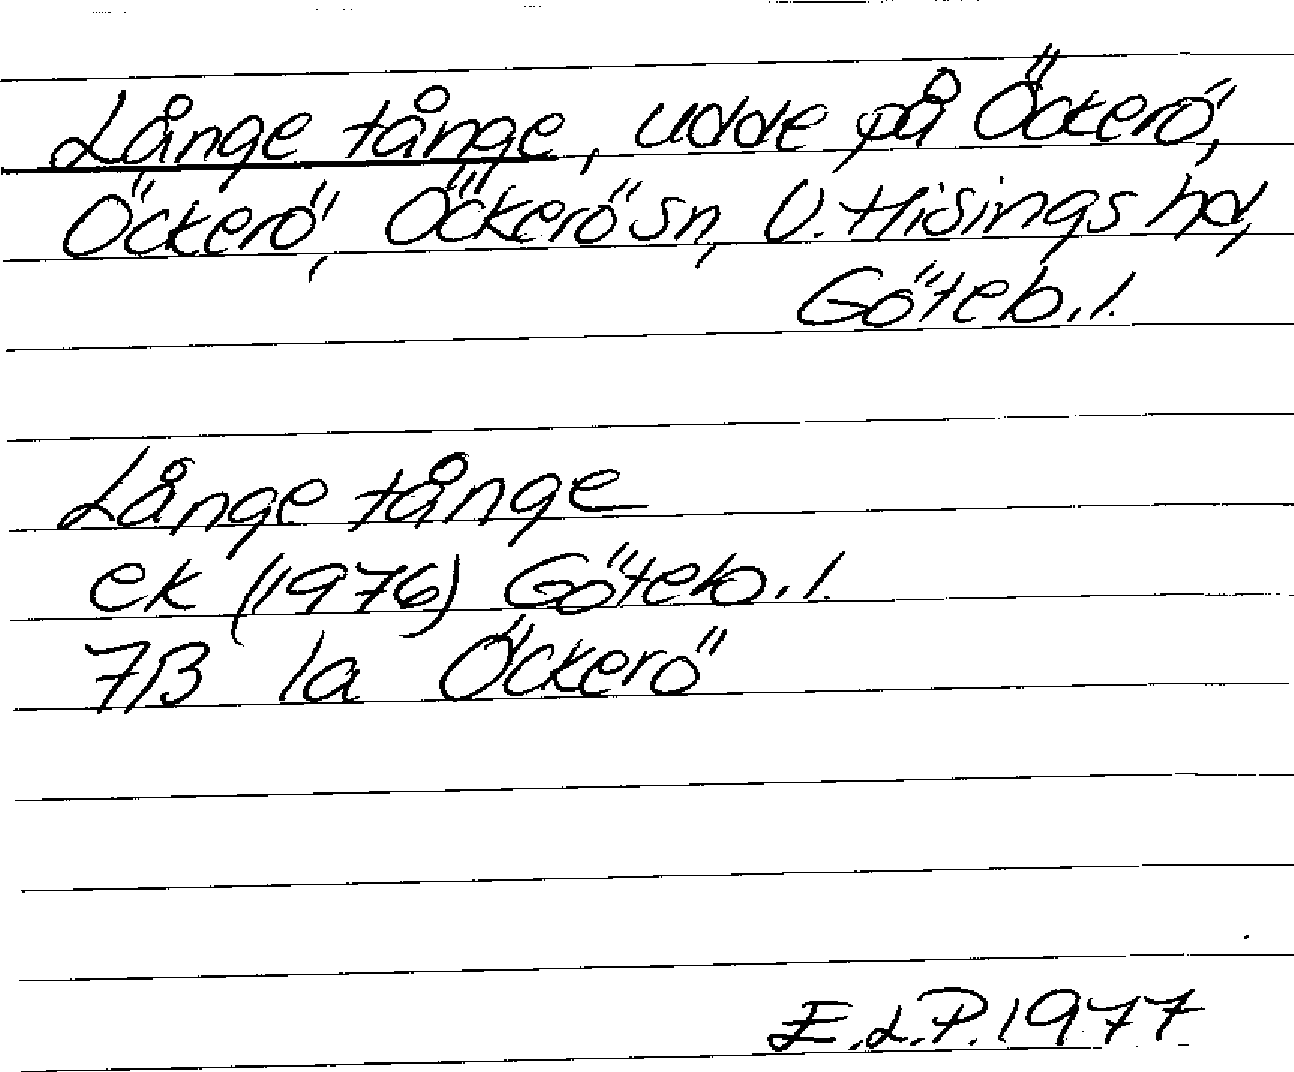 Långe tånge, udde på Öckerö,
Öckerö, Öckerö sn, V. Hisings hd,
Göteb. l.
Långe tånge
ek (1976) Göteb. l.
7B 1a Öckerö
E.L.P. 1977